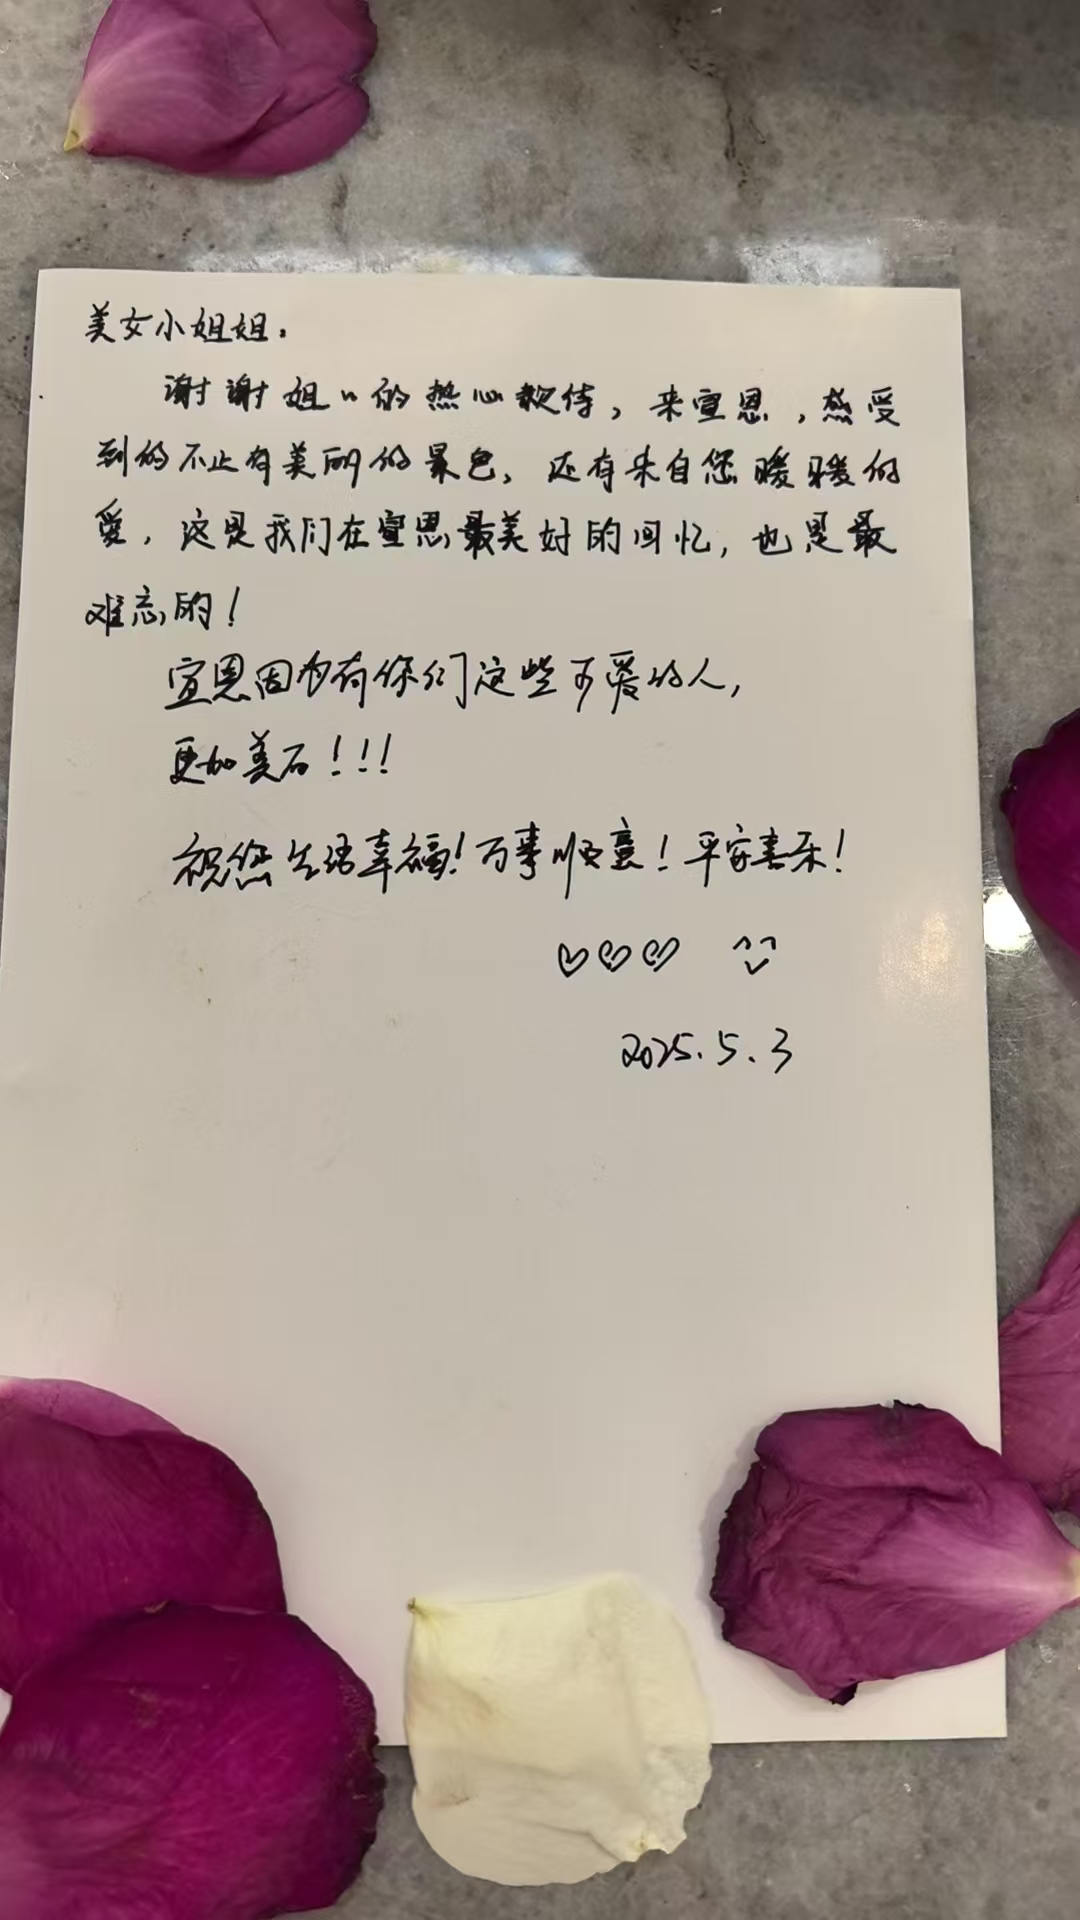 美女小姐姐.
谢谢姐〃的热心款待，来宣恩，感受
到的不止有美丽的景色，还有来自您暖暖的
爱，这是我们在宣恩最美好的回忆，也是最
难忘的！
宣恩因为有你们这些可爱的人，
更加美石！！！
祝您生活幸福！万事顺意！平安喜乐！
♡♡♡ ^^
2025.5.3